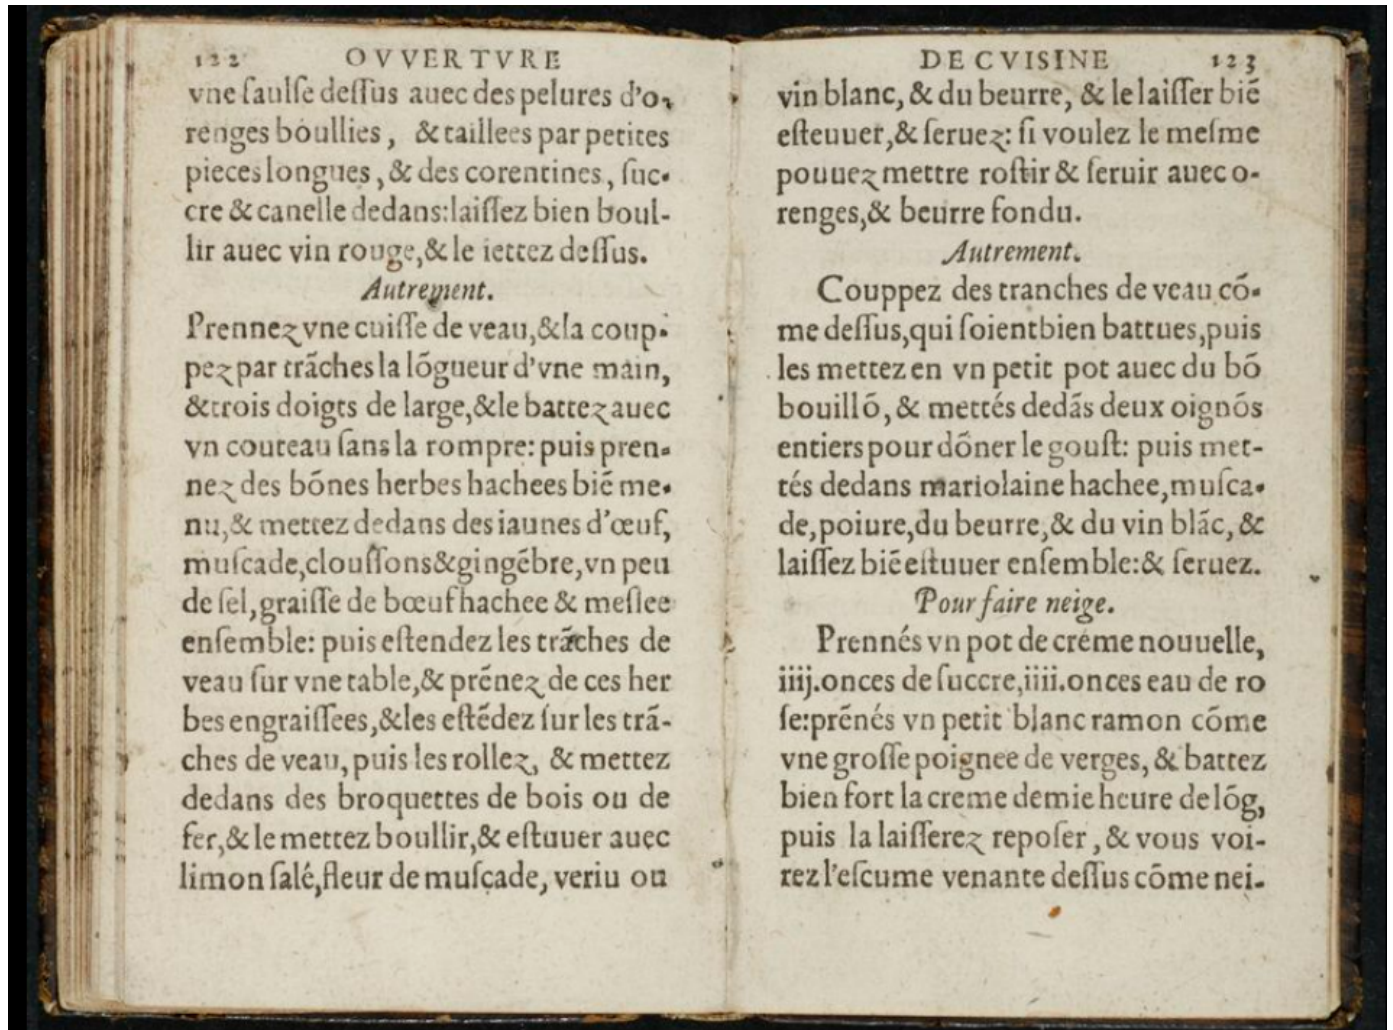 122 OVVERTVRE
vne ſaulſe deſſus auec des pelures d'o-
renges boullies, & taillees par petites
pieces longues, & des corentines, ſuc-
cre & canelle dedans: laiſſez bien boul-
lir auec vin rouge, & le iettez deſſus.
Autrement.
Prennez vne cuiſſe de veau, & la coup-
pez par trāches la lōgueur d'vne main,
& trois doigts de large, & le battez auec
vn couteau ſans la rompre: puis pren-
nez des bōnes herbes hachees biē me-
nu, & mettez dedans des iaunes d'œuf,
muſcade, clouſſons & gingēbre, vn peu
de ſel, graiſſe de bœuf hachee & meſlee
enſemble: puis eſtendez les trāches de
veau ſur vne table, & prēnez de ces her
bes engraiſſees, & les eſtēdez ſur les trā-
ches de veau, puis les rollez, & mettez
dedans des broquettes de bois ou de
fer, & le mettez boullir, & eſtuuer auec
limon ſalé, fleur de muſcade, veriu ou
DE CVISINE 123
vin blanc, & du beurre, & le laiſſer biē
eſteuuer, & ſeruez: ſi voulez le meſme
pouuez mettre roſtir & ſeruir auec o-
renges, & beurre fondu.
Autrement.
Couppez des tranches de veau cō-
me deſſus, qui ſoient bien battues, puis
les mettez en vn petit pot auec du bō
bouillō, & mettés dedās deux oignōs
entiers pour dōner le gouſt: puis met-
tés dedans mariolaine hachee, muſca-
de, poiure, du beurre, & du vin blāc, &
laiſſez biē eſtuuer enſemble: & ſeruez.
Pour faire neige.
Prennés vn pot de créme nouuelle,
iiij. onces de ſuccre, iiii. onces eau de ro
ſe: prēnés vn petit blanc ramon cōme
vne groſſe poignee de verges, & battez
bien fort la creme demie heure de lōg,
puis la laiſſerez repoſer, & vous voi-
rez l'eſcume venante deſſus cōme nei-